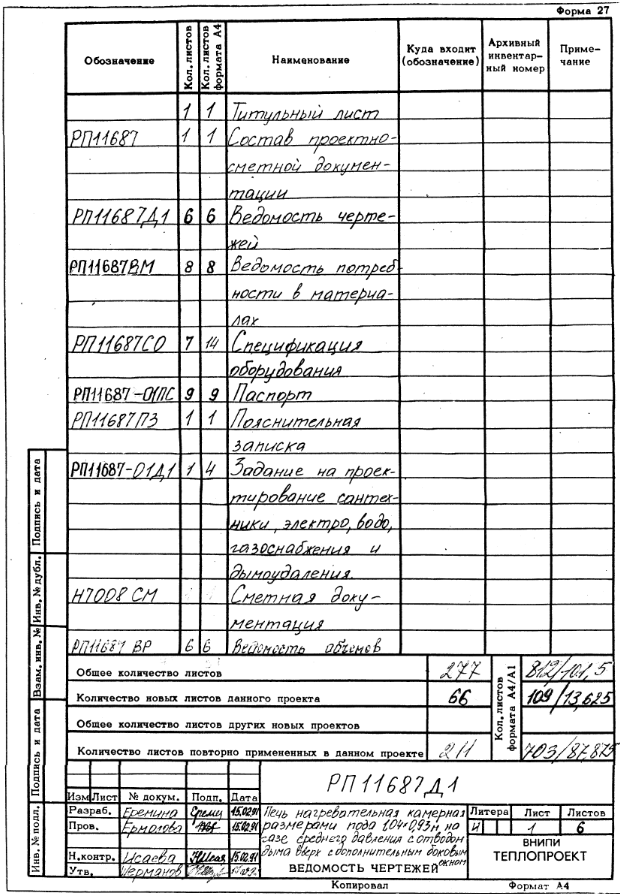 Форма 27
Обозначение Кол. листов Кол. листов формата А4 Наименование Куда входит (обозначение) Архивный инвентарный номер Примечание
1 1 Титульный лист
РП11687 1 1 Состав проектно-
сметной докумен-
тации
РП11687Д1 6 6 Ведомость черте-
жей
РП11687ВМ 8 8 Ведомость потреб-
ности в материа-
лах
РП11687СО 7 14 Спецификация
оборудования
РП11687-01ПС 9 9 Паспорт
РП11687ПЗ 1 1 Пояснительная
записка
РП11687-01Д1 1 4 Задание на проек-
тирование сантех-
ники, электро, водо,
газоснабжения и
дымоудаления.
Н7008 СМ Сметная доку-
ментация
РП11687 ВР 6 6 Ведомость объемов
Общее количество листов 277 812/101,5
Количество новых листов данного проекта 66 109/13,625
Общее количество листов других новых проектов
Количество листов повторно примененных в данном проекте 211 703/87,875
Кол. листов формата А4/А1
РП11687Д1
Изм Лист № докум. Подп. Дата
Разраб. Еремина 15.02.91
Пров. Ермолова 15.02.91
Н.контр. Исаева 15.02.91
Утв. Германов
Печь нагревательная камерная
размерами пода 1,04×0,93м на
газе среднего давления с отводом
дыма вверх с дополнительным боковым
окном
ВЕДОМОСТЬ ЧЕРТЕЖЕЙ
Литера Лист Листов
И 1 6
ВНИПИ
ТЕПЛОПРОЕКТ
Инв. № подл. Подпись и дата Взам. инв. № Инв. № дубл. Подпись и дата
Копировал Формат А4